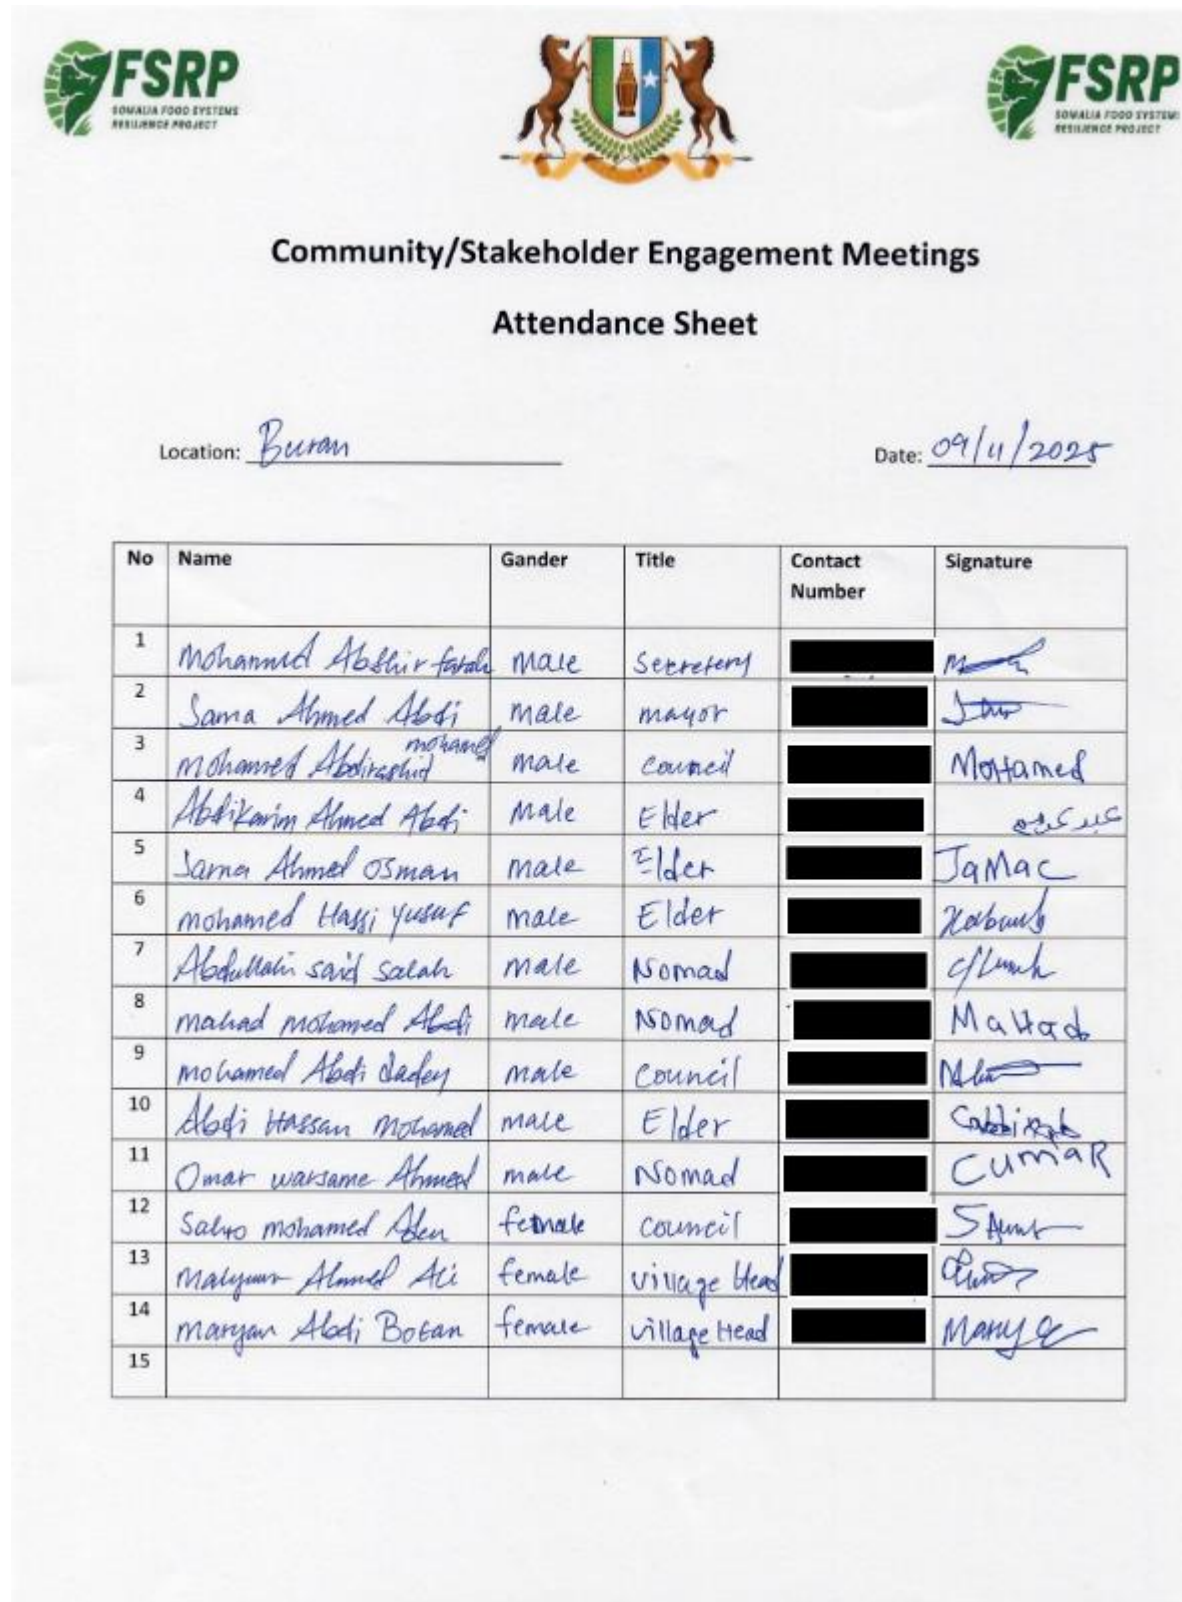 FSRP
SOMALIA FOOD SYSTEMS
RESILIENCE PROJECT
FSRP
SOMALIA FOOD SYSTEMS
RESILIENCE PROJECT
Community/Stakeholder Engagement Meetings
Attendance Sheet
Location: Buran Date: 09/11/2025
No Name Gander Title Contact Number Signature
1 Mohammed Abshir farah male Secretery
2 Jama Ahmed Abdi male mayor
3 mohamed Abdirashid mohamed male council Mohamed
4 Abdikarim Ahmed Abdi male Elder
5 Jama Ahmed Osman male Elder JaMac
6 mohamed Hassi Yusuf male Elder
7 Abdullahi said salah male Nomad
8 mahad mohamed Abdi male Nomad MaHad
9 mohamed Abdi dadey male council
10 Abdi Hassan mohamed male Elder
11 Omar warsame Ahmed male Nomad CUMAR
12 Sahro mohamed Aden female council
13 Ahmed Ali female village Head
14 maryan Abdi Botan female village Head
15